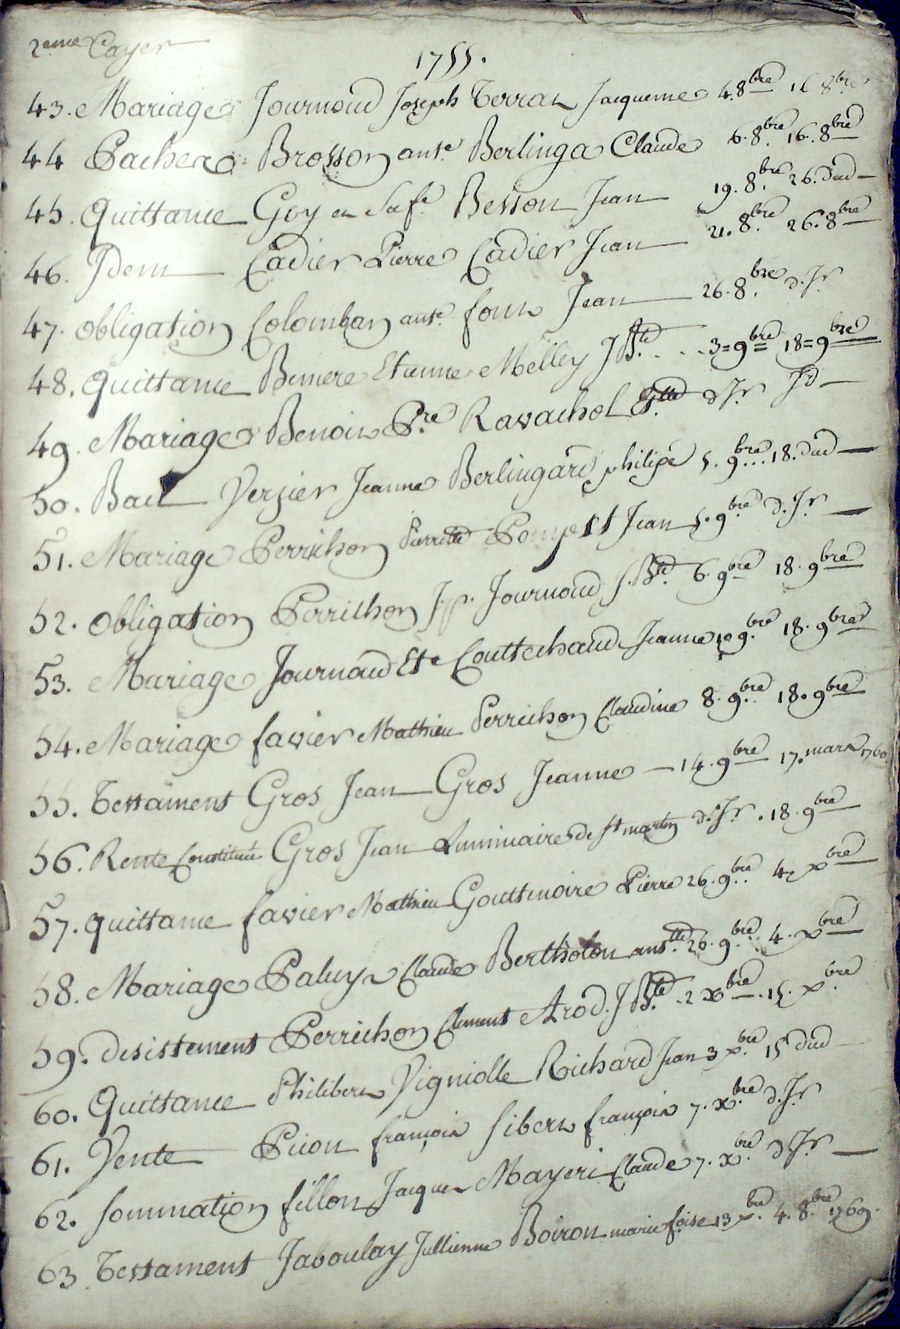 2eme Cayer
1755.
43. Mariage Journoud Joseph Terrat Jacqueme 4. 8bre 16 8bre
44 Pacheré Brosson ante Berlinga Claude 6. 8bre 16. 8bre
45. Quittance Goy et Besson Jean 19. 8bre 26. dud
46. Idem Cadier Pierre Cadier Jean 21. 8bre 26. 8bre
47. obligation Colomban ante font Jean 26. 8bre d. Jr
48. Quittance Etienne Melley J Bte 3=9bre 18=9bre
49. Mariage Benoit Pre Ravachol d Jr Jd
50. Bail Verzier Jeanne Berlingard philipe 5. 9bre 18. dud
51. Mariage Perrichon Pierrette Jean 5. 9bre d. Jr
52. obligation Perrichon Journoud J. Bte 6. 9bre 18. 9bre
53. Mariage Journoud Ete Couttechaud Jeanne 9bre 18. 9bre
54. Mariage favier Mathieu Perrichon Claudine 8. 9bre 18. 9bre
55. Testament Gros Jean Gros Jeanne 14. 9bre 17. mars 1760
56. Rente Constituée Gros Jean Luminaire de St martin d. Jr. 18. 9bre
57. quittame favier Mathieu Gouttenoire Pierre 26. 9bre 4. xbre
58. Mariage Paluy Claude Bertholon antte 26. 9bre 4. xbre
59. desistement Perrichon Clement Arod. J Bte 2 xbre 15. xbre
60. Quittance Philibert Vigniolle Richard Jean 3 xbre 15 dud
61. Vente Pion françois Sibert françois 7. xbre d. Jr
62. Sommation fillon Jacques Mayeri Claude 7. xbre d Jr
63 Testament Jaboulay Jullienne Boiron marie foise 13 xbre 4. 8bre 1769.